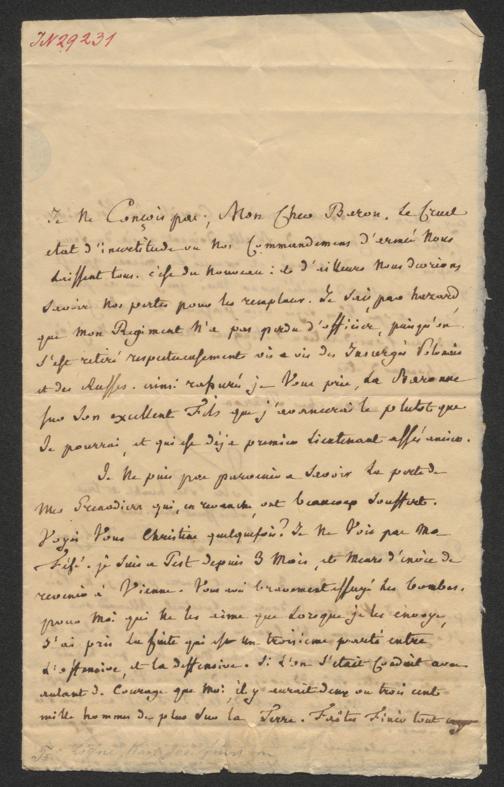 IN 29231
Je Ne Conçois pas, Mon Cher Baron, Le Cruel
etat d'incertitude ou Nos Commandemens d'armée Nous
Laissent tous. c'est du Nouveau: et d'ailleurs Nous devrions
Savoir Nos pertes pour les remplacer. Je Sais par hazard
que Mon Regiment N'a pas perdu d'officier, puisqu'on
S'est retiré respectueusement vis a vis des Insurgés Polonais
et des Russes. ainsi rassurés je Vous prie, La Baronne
sur Son excellent Fils que j'avancerai le plutot que
Je pourrai, et qui est deja premier Lieutenant assés ancien.
Je Ne puis pas parvenir a Savoir La perte de
Mes Grenadiers qui, en revanche, ont beaucoup Souffert.
Voyés Vous Christine quelquefois? Je Ne Vois pas Ma
Fifi. je suis a Pest depuis 3 Mois, et Meurs d'envie de
revenir a Vienne. Vous avés bravement essuyé les bombes.
pour Moi qui Ne les aime que Lorsque je les envoye,
J'ai pris La fuite qui est un troisieme parti entre
L'offensive, et la deffensive. Si L'on S'etait Conduit avec
autant de Courage que Moi, il y aurait deux ou trois cent
mille hommes de plus Sur la Terre. Faites Finir tout